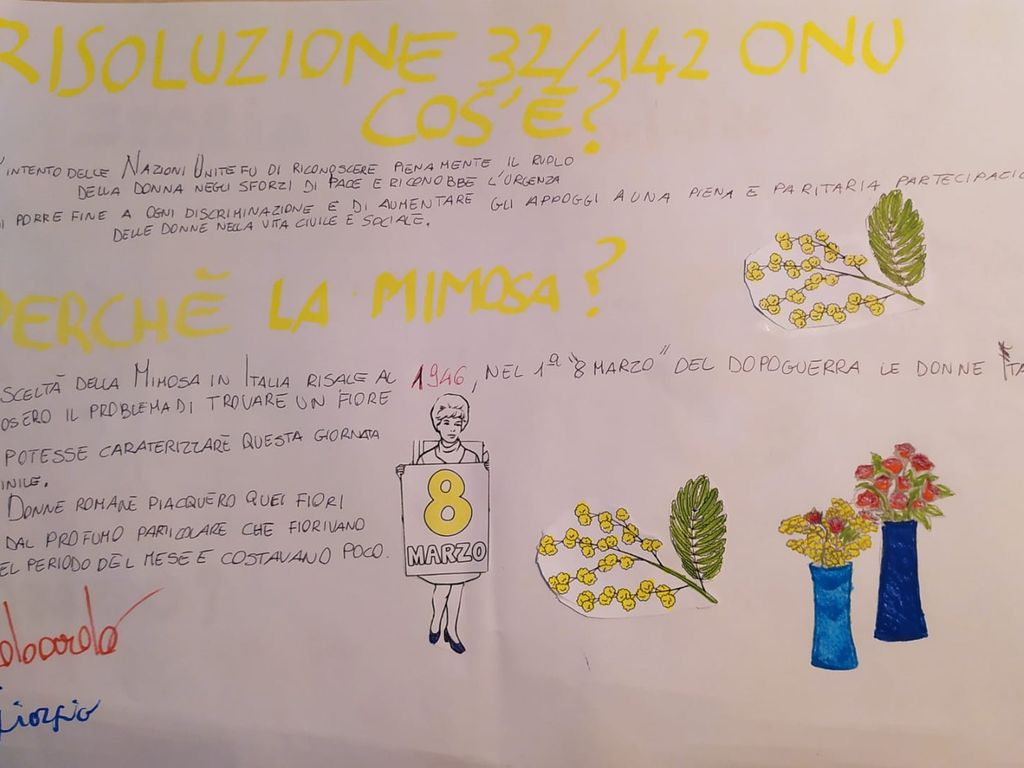 RISOLUZIONE 32/142 ONU
COS'È?
'INTENTO DELLE NAZIONI UNITE FU DI RICONOSCERE PIENAMENTE IL RUOLO
DELLA DONNA NEGLI SFORZI DI PACE E RICONOBBE L'URGENZA
I PORRE FINE A OGNI DISCRIMINAZIONE E DI AUMENTARE GLI APPOGGI A UNA PIENA E PARITARIA PARTECIPAZIO
DELLE DONNE NELLA VITA CIVILE E SOCIALE.
PERCHÈ LA MIMOSA?
SCELTA DELLA MIMOSA IN ITALIA RISALE AL 1946, NEL 1° "8 MARZO" DEL DOPOGUERRA LE DONNE ITA
OSERO IL PROBLEMA DI TROVARE UN FIORE
POTESSE CARATERIZZARE QUESTA GIORNATA
INILE.
DONNE ROMANE PIACQUERO QUEI FIORI
DAL PROFUMO PARTICOLARE CHE FIORIVANO
EL PERIODO DEL MESE E COSTAVANO POCO.
8
MARZO
Giorgio